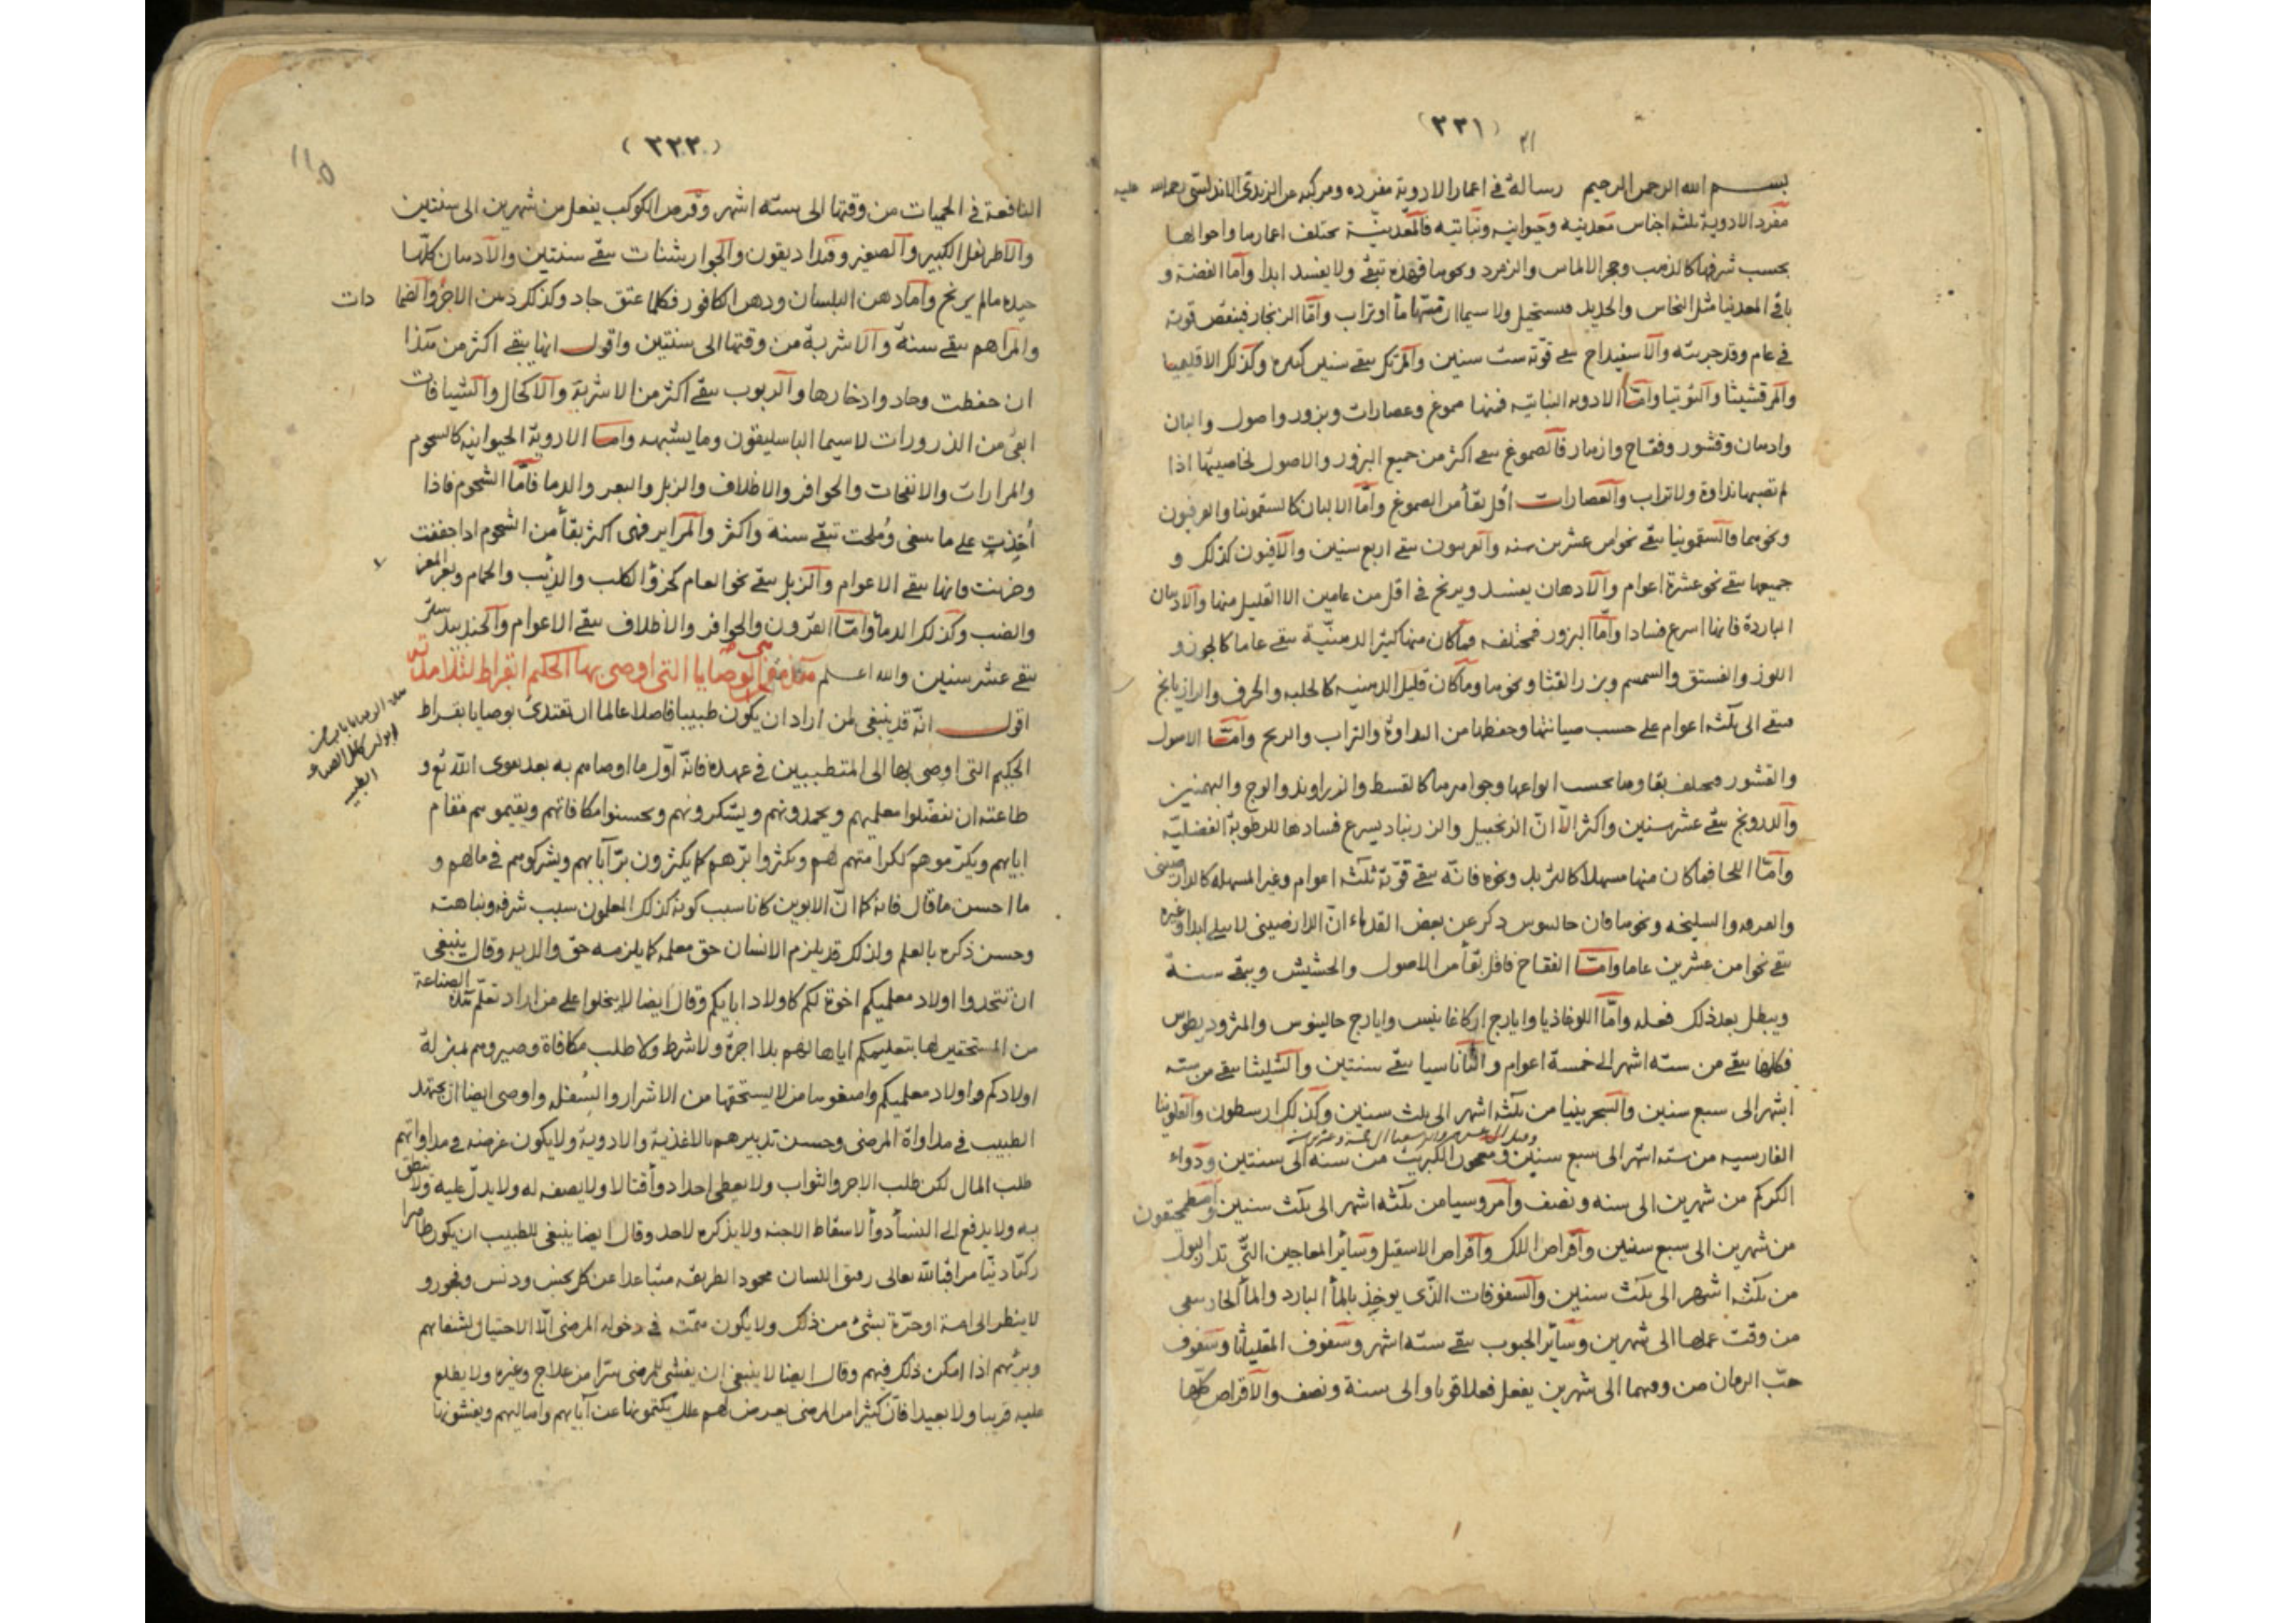 (٣٣١)
بسم الله الرحمن الرحيم رسالة في اعمار الادوية مفرده ومركبه عن الزيدى الاندلسى رحمة الله عليه
مفرد الادوية ثلثه اجناس معدنيه وحيوانيه ونباتيه فالمعدنيّة تختلف اعمارها واحوالها
بحسب شرفها كالذهب وحجر الالماس والزمرد ونحوها فهذه تبقى ولا يفسد ابدا وأمّا الفضة و
باقى المعدنيات مثل النحاس والحديد فيستحيل ولا سيما ان مسّها ماأ او تراب وأمّا الزنجار فينقص قوته
في عام وقد جربته والاسفيداج يبقى قوّته ست سنين والمرتك يبقى سنين كثيره وكذلك الاقليميا
والمرقشيثا والتوتيا وأمّا الادويه النباتيه فمنها صموغ وعصارات وبزور واصول والبان
وادهان وقشور وفقاح وازهار فالصموغ يبقى اكثر من جميع البزور والاصول لخاصيتها اذا
لم تصبها نداوة ولا تراب والعصارات اقل بقأ من الصموغ وأمّا الالبان كالسقمونيا والفربيون
ونحوهما فالسقمونيا يبقى نحوا من عشرين سنه والفربيون يبقى اربع سنين والافيون كذلك و
جميعها يبقى نحو عشرة اعوام والادهان يفسد ويرنخ في اقل من عامين الا القليل منها والادهان
الباردة فانها اسرع فسادا وأمّا البزور فمختلفه فما كان منها كثير الدهنيّة يبقى عاما كالجوز و
اللوز والفستق والسمسم وبزر القثا ونحوها وما كان قليل الدهنيه كالحلبه والحرف والرازيانج
فيبقى الى ثلثه اعوام على حسب صيانتها وحفظها من النداوة والتراب والريح وأمّا الاصول
والقشور فمختلف بقاوها بحسب انواعها وجواهرها كالقسط والزراوند والوج والبهمنين
والدرونج يبقى عشر سنين واكثر الّا انّ الزنجبيل والزرنباد يسرع فسادها للرطوبة الفضليّه
وأمّا اللحا فما كان منها مسهلا كالتربد ونحوه فانّه يبقى قوّته ثلثه اعوام وغير المسهله كالدارصينى
والقرفه والسليخه ونحوها فان جالينوس ذكر عن بعض القدماء انّ الدارصينى لا يبلى ابدا وغيره
يبقى نحوا من عشرين عاما وأمّا الفقاح فاقل بقأ من الاصول والحشيش ويبقى سنة
ويبطل بعد ذلك فعله وأمّا اللوغاذيا وايارج اركاغانيس وايارج جالينوس والمثروديطوس
فكلها يبقى من سته اشهر الى خمسة اعوام والاثاناسيا يبقى سنتين والشليثا يبقى من سته
اشهر الى سبع سنين والسجزينيا من ثلثه اشهر الى ثلث سنين وكذلك ارسطون والفلونيا
الفارسيه من سته اشهر الى سبع سنين ومعجون الكبريت من سنه الى سنتين ودواء
الكركم من شهرين الى سنه ونصف وامروسيا من ثلثه اشهر الى ثلث سنين واصطمخيقون
من شهرين الى سبع سنين واقراص اللك واقراص الاسقيل وسائر المعاجين التّى تدر البول
من ثلثه اشهر الى ثلث سنين والسفوفات الذّى يوخذ بالمأ البارد والمأ الحار يبقى
من وقت عملها الى شهرين وسائر الحبوب يبقى سته اشهر وسفوف المقلياثا وسفوف
حبّ الرمان من وقتهما الى شهرين يفعل فعلا قويا والى سنة ونصف والاقراص كلّها
(٣٣٢)
١١٥
النافعة في الحميات من وقتها الى ستّه اشهر وقرص الكوكب يفعل من شهرين الى سنتين
والاطريفل الكبير والصغير وفنداديقون والجوارشنات يبقى سنتين والادهان كلّها
جيده مالم يرنخ وأما دهن البلسان ودهن الكافور فكلما عتق جاد وكذلك دهن الاجر والضمادات
والمراهم يبقى سنة والاشربة من وقتها الى سنتين واقول انها يبقى اكثر من هذا
ان حفظت وجاد ادخارها والربوب يبقى اكثر من الاشربة والاكحال والشيافات
ابقى من الذرورات لا سيما الباسليقون وما يشبهه وأمّا الادوية الحيوانيه كالشحوم
والمرارات والانفحات والحوافر والاظلاف والزبل والبعر والدما فامّا الشحوم فاذا
أخذت على ما ينبغى ومُلحت تبقى سنة واكثر والمراير فهى اكثر بقأ من الشحوم اذا جففت
وخزنت فانها يبقى الاعوام والزبل يبقى نحو العام كخرؤ الكلب والذئب والحمام وبعر المعز
والضب وكذلك الدمأ وأمّا القرون والحوافر والاظلاف يبقى الاعوام والجندبيدستر
يبقى عشر سنين والله اعلم هذه هى الوصايا التى اوصى بها الحكيم ابقراط لتلامذته
اقول انّه قد ينبغى لمن اراد ان يكون طبيبا فاضلا عالما ان يقتدى بوصايا بقراط
الحكيم التى اوصى بها الى المتطببين في عهده فانّه اوّل ما اوصاهم به بعد تقوى الله تع و
طاعته ان يفضّلوا معلميهم ويحمدونهم ويشكرونهم ويحسنوا مكافاتهم ويقيموهم مقام
ابايهم ويكرّموهم ككرامتهم لهم ويكثروا برّهم كما يكثرون برّ آبايهم ويشركوهم في مالهم و
ما احسن ما قال فانه كما انّ الابوين كانا سبب كونه كذلك المعلمون سبب شرفه ونباهته
وحسن ذكره بالعلم ولذلك قد يلزم الانسان حق معلمه كما يلزمه حقّ والديه وقال ينبغى
ان تتخذوا اولاد معلميكم اخوة لكم كاولاد ابايكم وقال ايضا لا تبخلوا على من اراد تعلّم هذه الصناعة
من المستحقين لها بتعليمكم اياها لهم بلا اجرة ولا شرط ولا طلب مكافاة وصيروهم بمنزلة
اولادكم واولاد معلميكم وامنعوها من لا يستحقها من الاشرار والسُفل واوصى ايضا ان يجتهد
الطبيب في مداواة المرضى وحسن تدبيرهم بالاغذية والادوية ولا يكون غرضه في مداواتهم
طلب المال لكن طلب الاجر والثواب ولا يعطى احدا دوأ قتالا ولا يصفه له ولا يدلّ عليه ولا ينطق
به ولا يدفع الى النسأ دوأ لاسقاط الاجنه ولا يذكره لاحد وقال ايضا ينبغى للطبيب ان يكون طاهرا
زكيّا ديّنا مراقبا لله تعالى رفيق اللسان محمود الطريقه متباعدا عن كل نجس ودنس وفجور و
لا ينظر الى امة او حرّة بشئ من ذلك ولا يكون همّته في دخوله المرضى الّا الاحتيال لشفائهم
وبرئهم اذا امكن ذلك فيهم وقال ايضا لا ينبغى ان يفشى للمرضى سرّا من علاج وغيره ولا يطلع
عليه قريبا ولا بعيدا فانّ كثيرا من المرضى يعرض لهم علل يكتمونها عن آبايهم واهاليهم ويفشونها